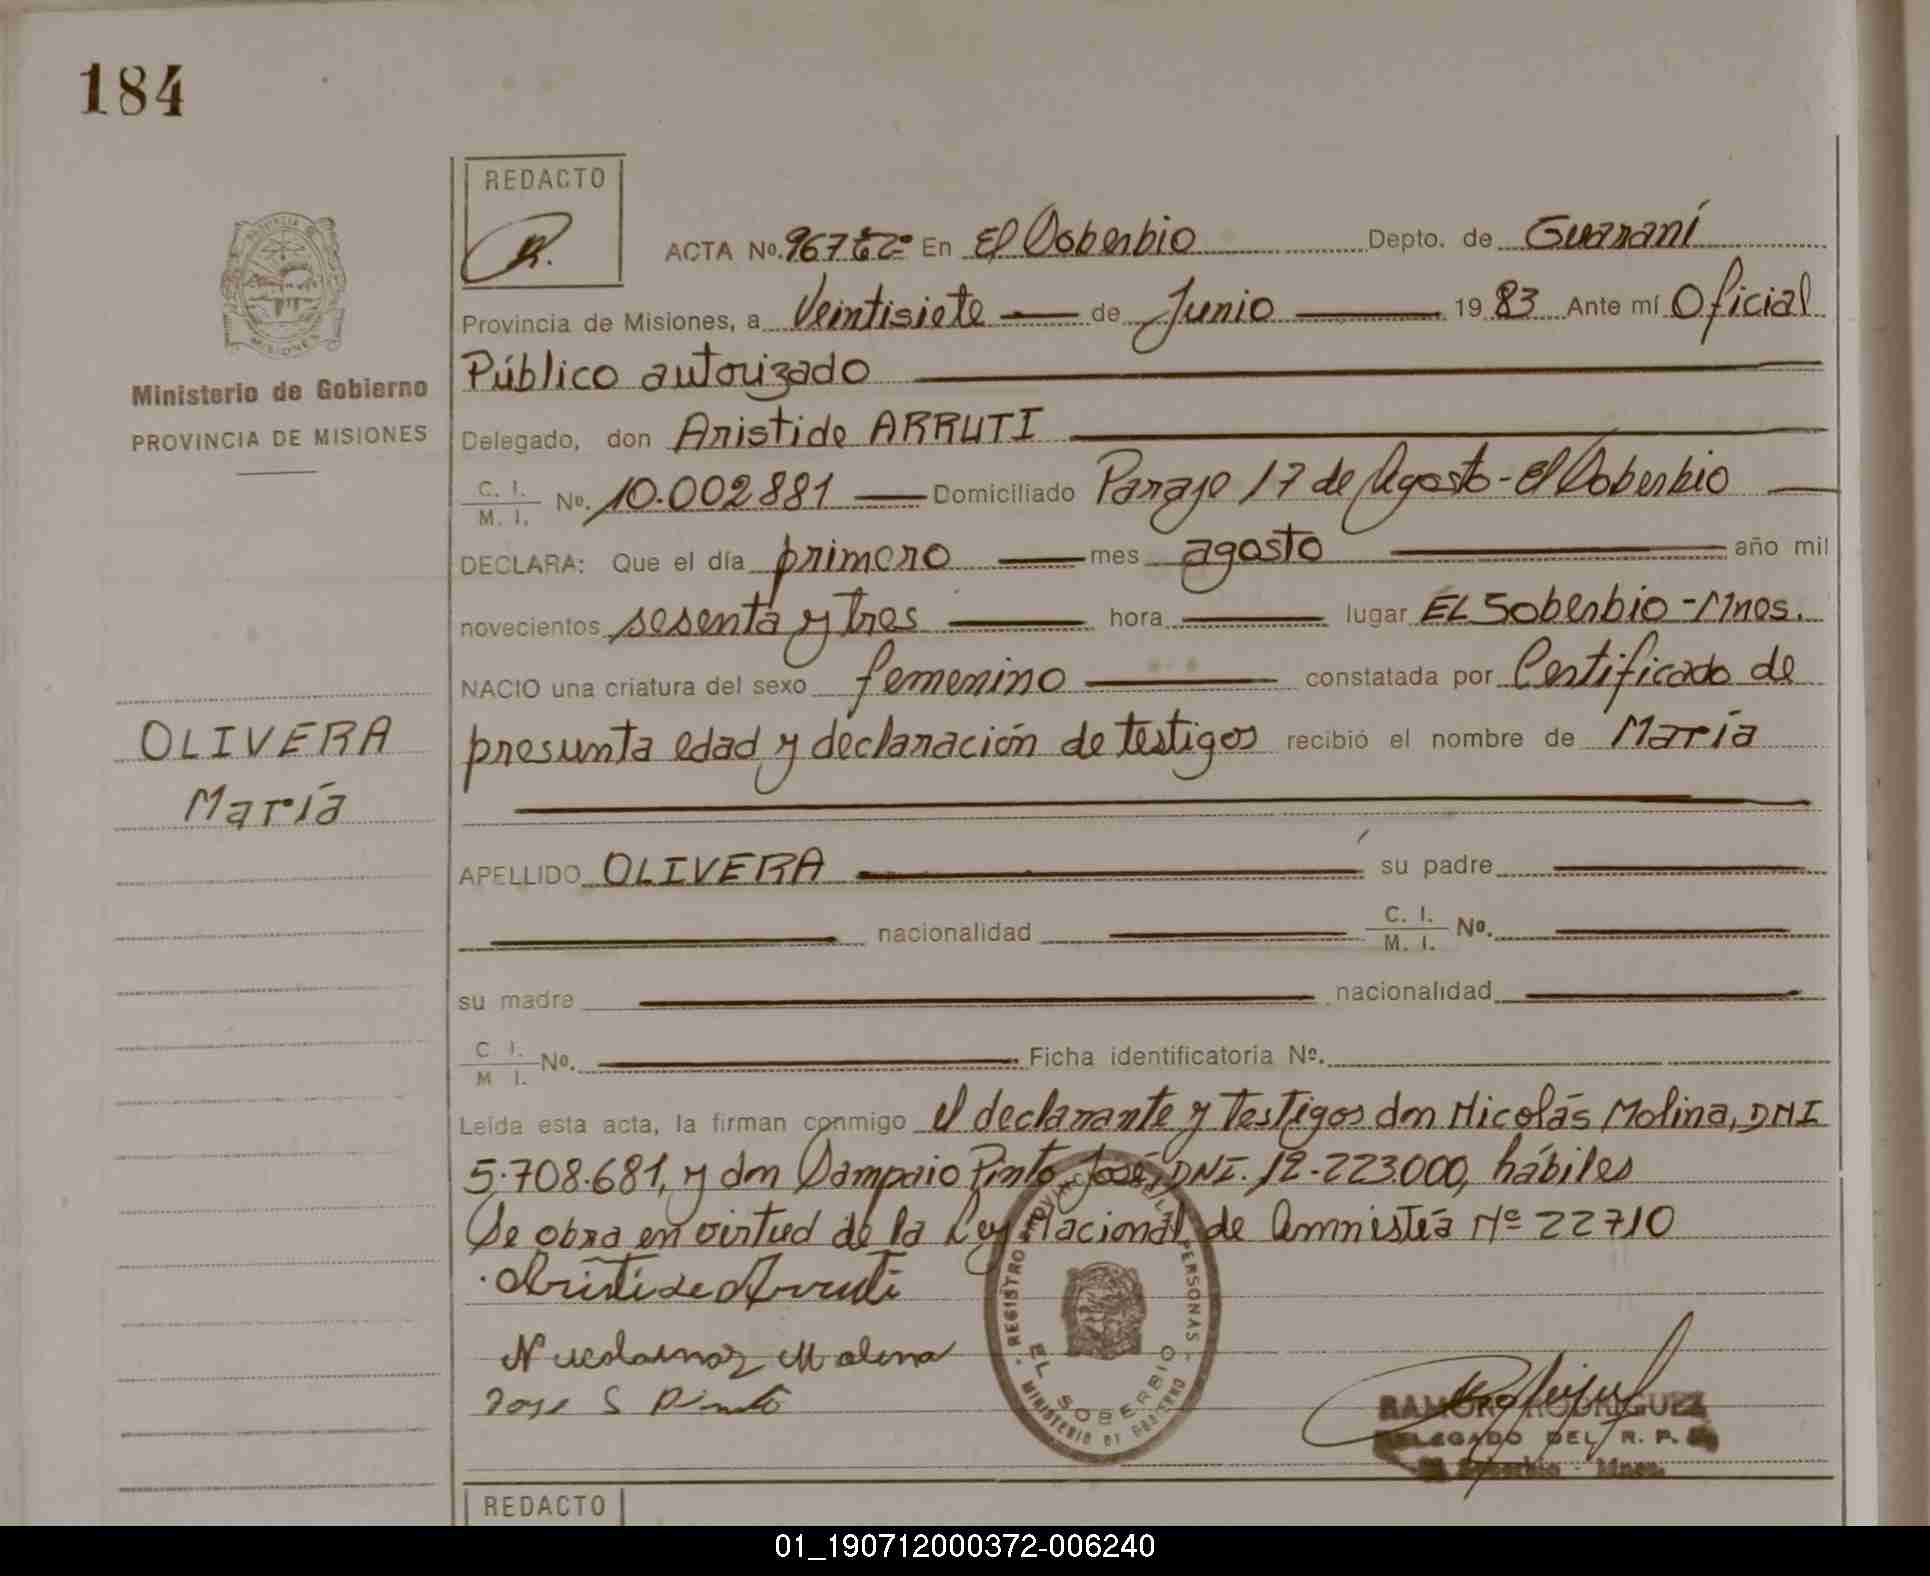 184
REDACTO
R.
PROVINCIA DE
MISIONES
Ministerio de Gobierno
PROVINCIA DE MISIONES
ACTA No. 967 En El Soberbio Depto. de Guaraní
Provincia de Misiones, a Veintisiete de Junio 19 83 Ante mí Oficial
Público autorizado
Delegado, don Aristide ARRUTI
C. I.
M. I. No. 10.002881 Domiciliado Paraje 17 de Agosto - El Soberbio
DECLARA: Que el día primero mes agosto año mil
novecientos sesenta y tres hora lugar EL Soberbio - Mnes.
NACIO una criatura del sexo femenino constatada por Certificado de
presunta edad y declaración de testigos recibió el nombre de María
OLIVERA
María
APELLIDO OLIVERA su padre
nacionalidad C. I. M. I. No.
su madre nacionalidad
C. I. M. I. No. Ficha identificatoria No.
Leída esta acta, la firman conmigo el declarante y testigos don Nicolás Molina, DNI
5.708.681, y don Sampaio Pinto José, DNI. 12.223.000, hábiles
Se obra en virtud de la Ley Nacional de Amnistía Nº 22710
Aristide Arruti
Molina
Jose S Pinto
REGISTRO PROVINCIAL PERSONAS
EL SOBERBIO
MINISTERIO DE GOBIERNO
RAMON RODRIGUEZ
DELEGADO DEL R. P.
El Soberbio - Mnes.
REDACTO
01_190712000372-006240